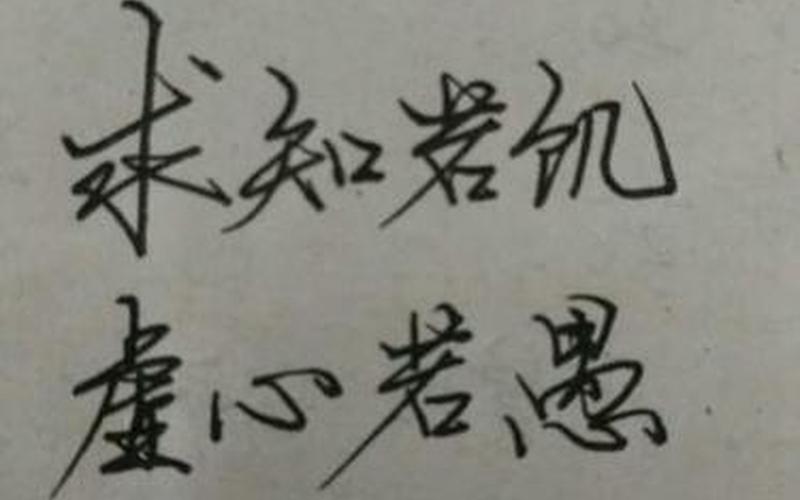 求知若饥
虚心若愚